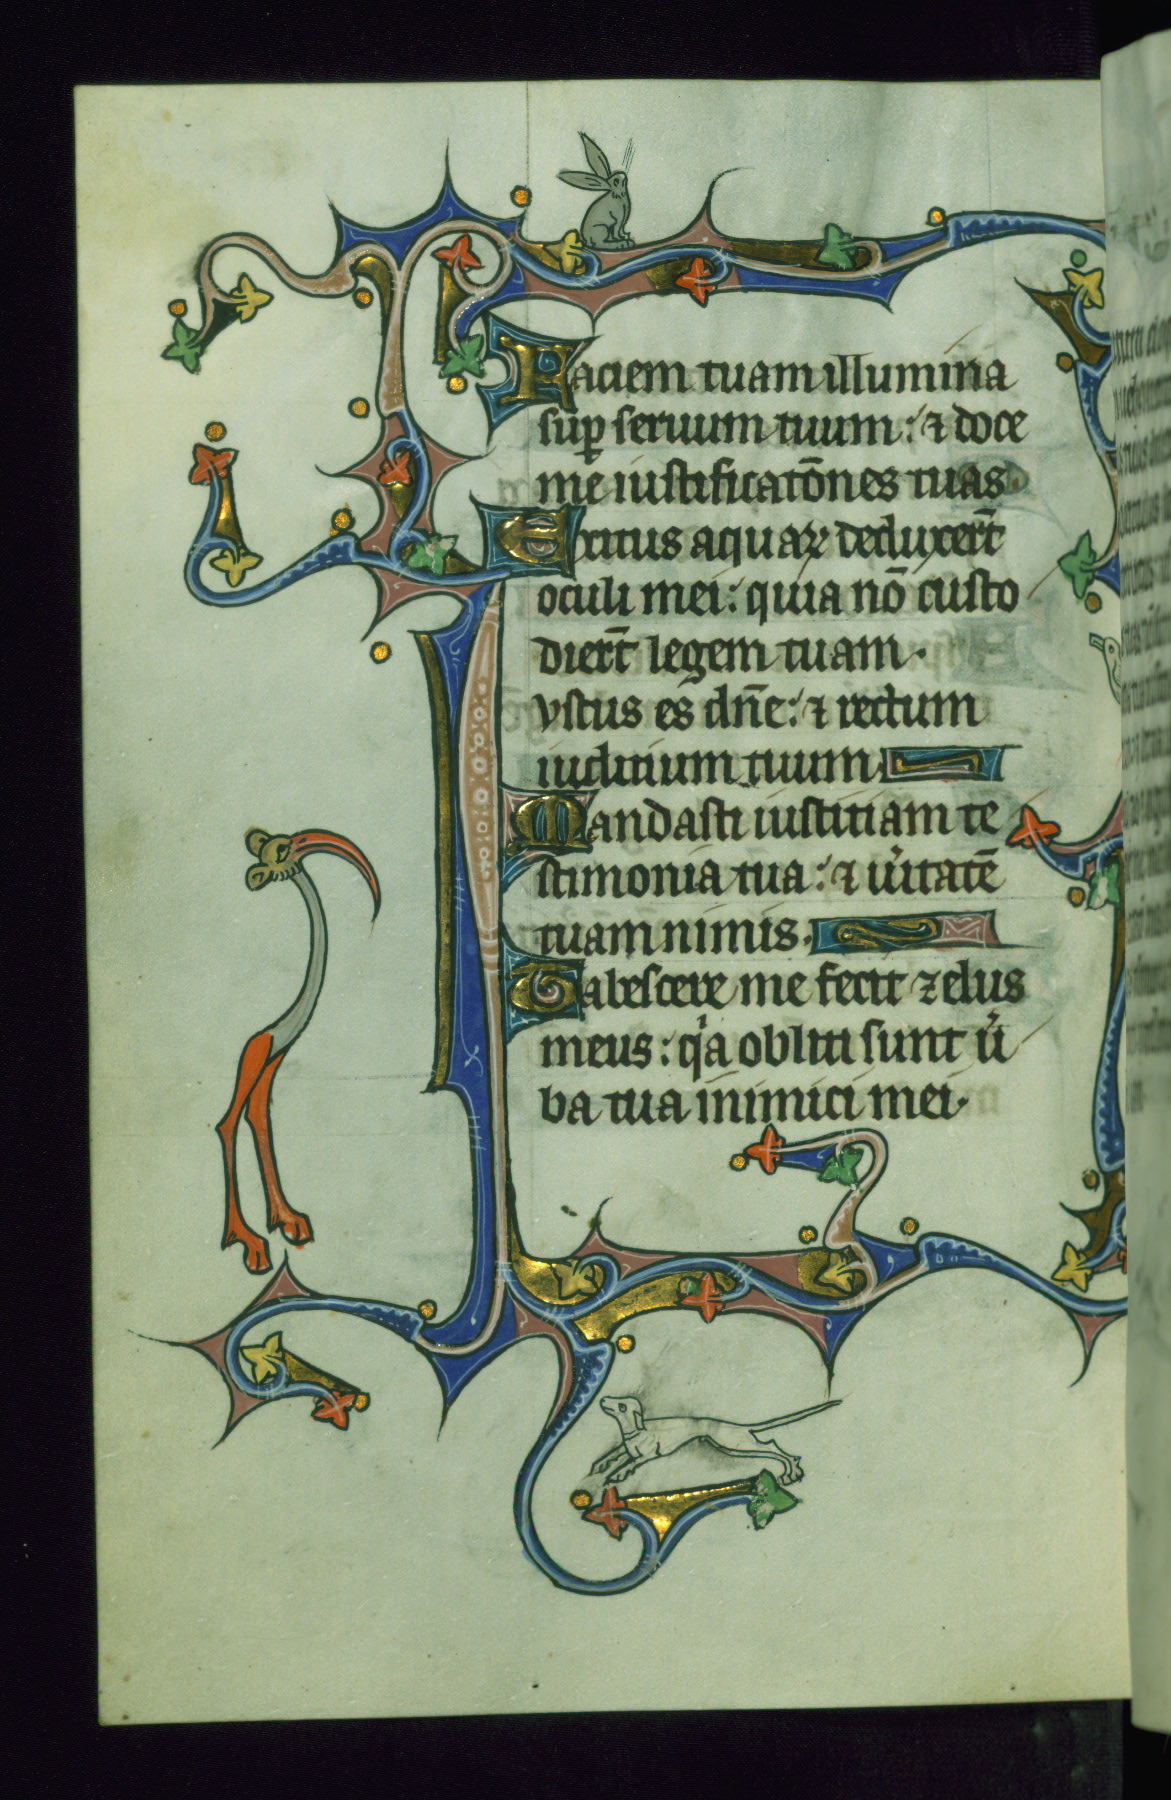 Faciem tuam illumina
sup̱ seruum tuum: ⁊ doce
me iustificatōnes tuas
Exitus aquaꝝ deduxer̄t
oculi mei: quia nō custo
dier̄t legem tuam.
ustus es dn̄e: ⁊ rectum
iudicium tuum.
Mandasti iusticiam te
stimonia tua: ⁊ ūitatē
tuam nimis.
Tabescere me fecit zelus
meus: qͥa obliti sunt ū
ba tua inimici mei.